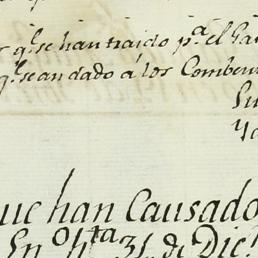 s qᵉ se han traido pᵃ el Ga
qᵉ se an dado á los Comben
ue han Causado
En° hᵗᵃ 31 de Dicᵉ